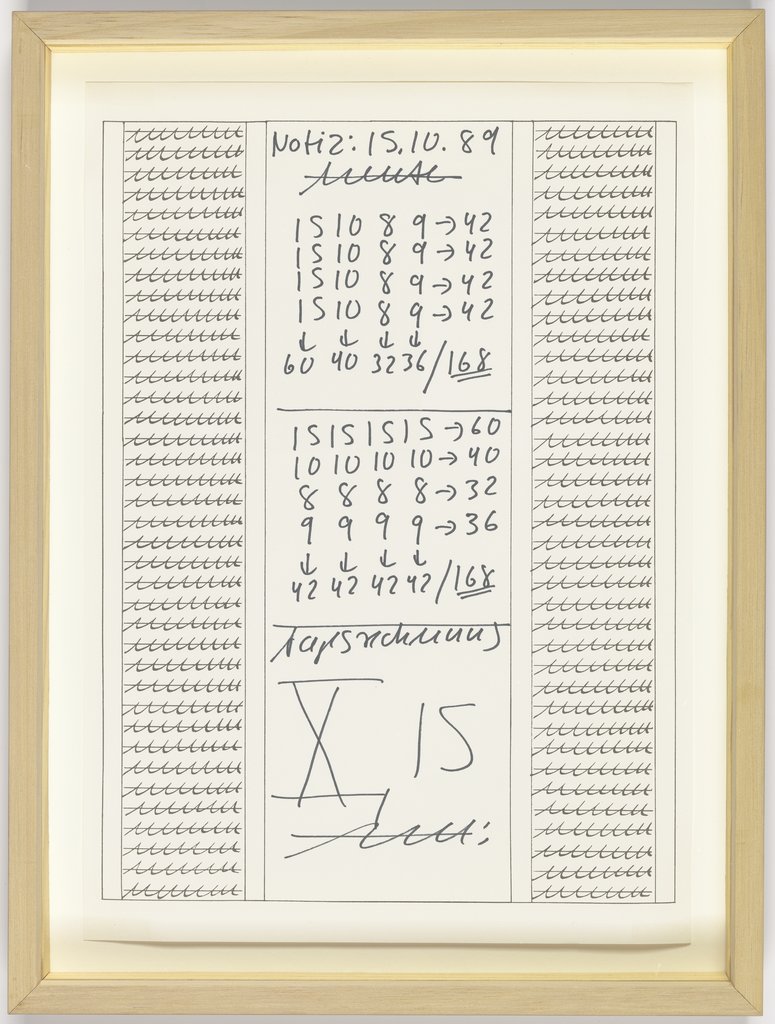 Notiz: 15.10.89
heute
15 10 8 9→42
15 10 8 9→42
15 10 8 9→42
15 10 8 9→42
↓ ↓ ↓ ↓
60 40 32 36/168
15 15 15 15→60
10 10 10 10→40
8 8 8 8→32
9 9 9 9→36
↓ ↓ ↓ ↓
42 42 42 42/168
Tagesrechnung
X 15